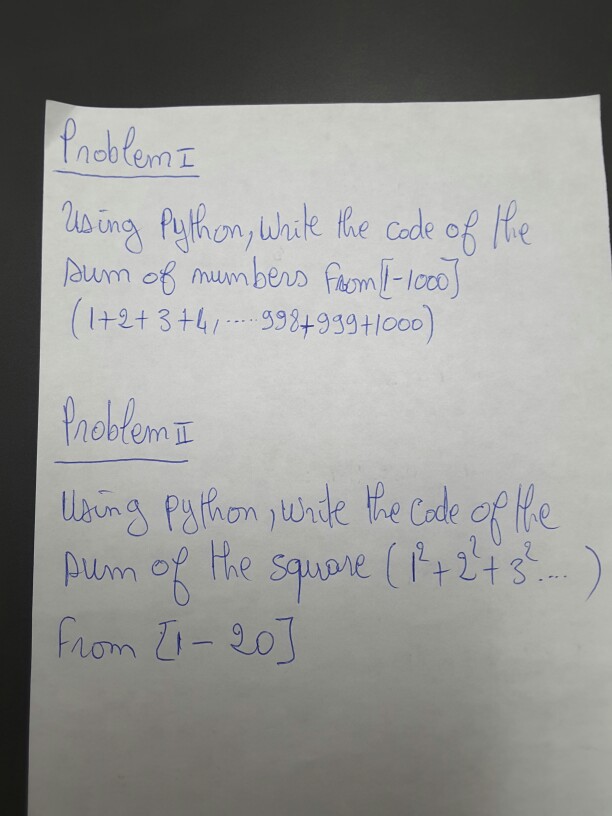 Problem I
Using Python, Write the code of the
sum of numbers From [1-1000]
(1+2+3+4, ..... 998+999+1000)
Problem II
Using python, write the code of the
sum of the square (1²+2²+3².... )
From [1-20]